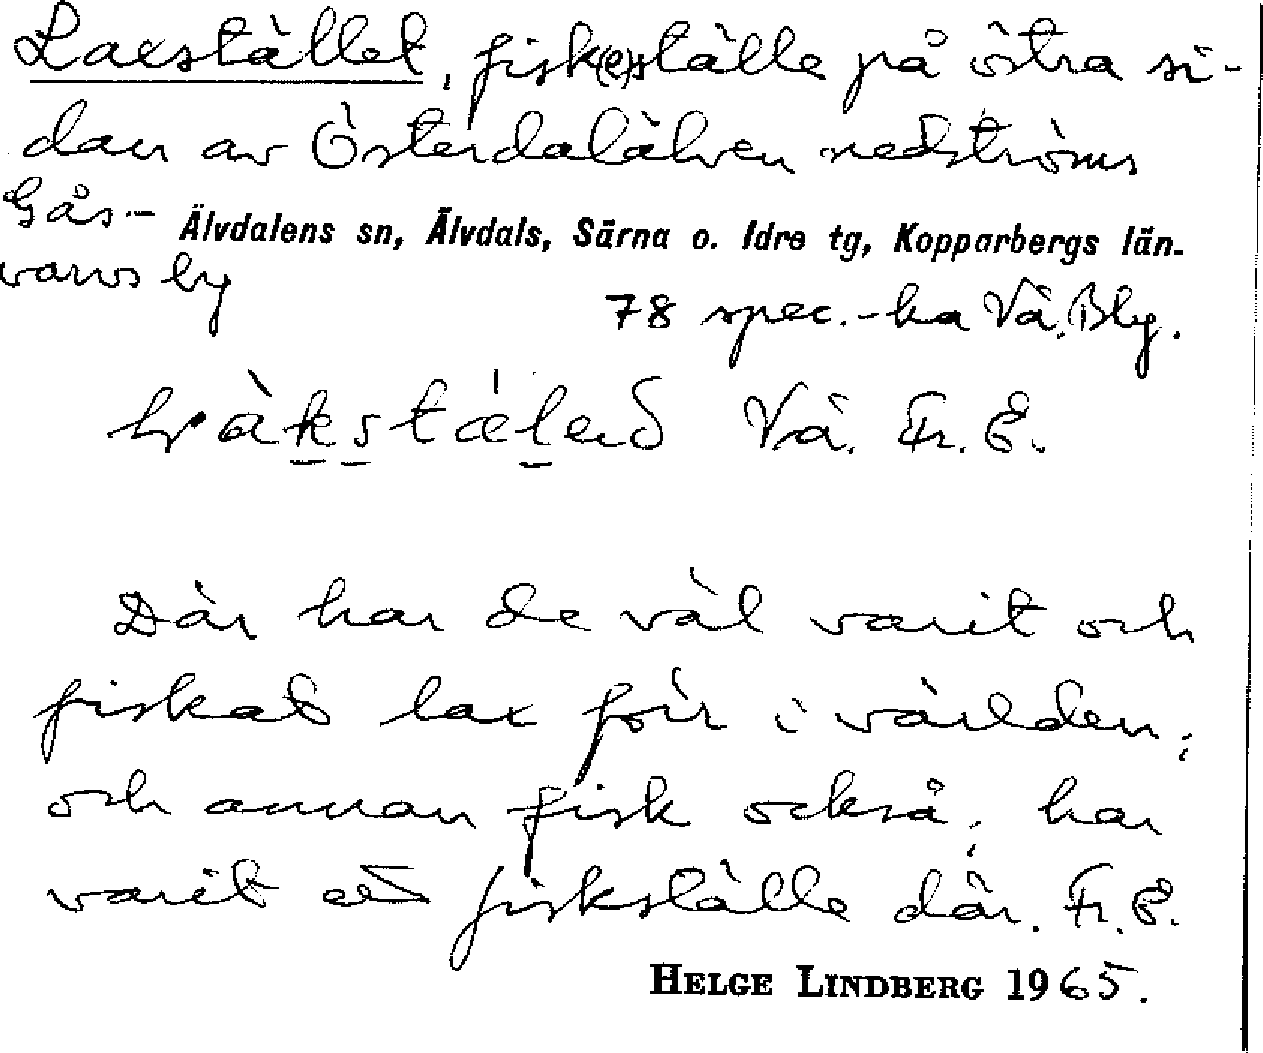 Laxstället, fisk(e)ställe på östra si-
dan av Österdalälven nedströms
Gås-
Älvdalens sn, Älvdals, Särna o. Idre tg, Kopparbergs län.
varvs by
78 spec.-ka Vå. Blg.
Vå. Fr. E.
Där har de väl varit och
fiskat lax förr i världen;
och annan fisk också; har
varit ett fiskställe där. Fr. E.
HELGE LINDBERG 1965.